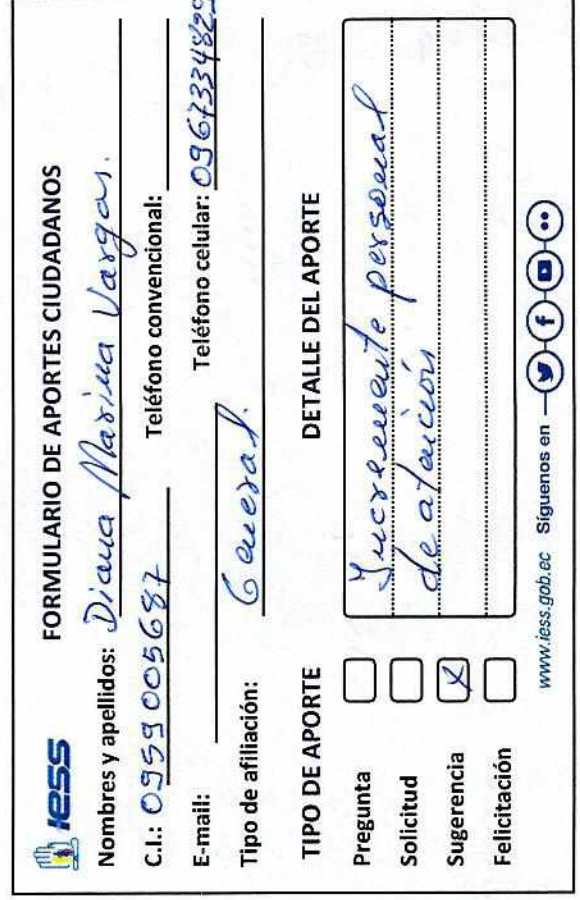 iess
FORMULARIO DE APORTES CIUDADANOS
Nombres y apellidos: Diana Marina Vargas.
C.I.: 0959005687 Teléfono convencional:
E-mail: Teléfono celular: 0967334829
Tipo de afiliación: General.
TIPO DE APORTE DETALLE DEL APORTE
Pregunta Incremente personal
Solicitud de atención
Sugerencia X
Felicitación
www.iess.gob.ec Síguenos en